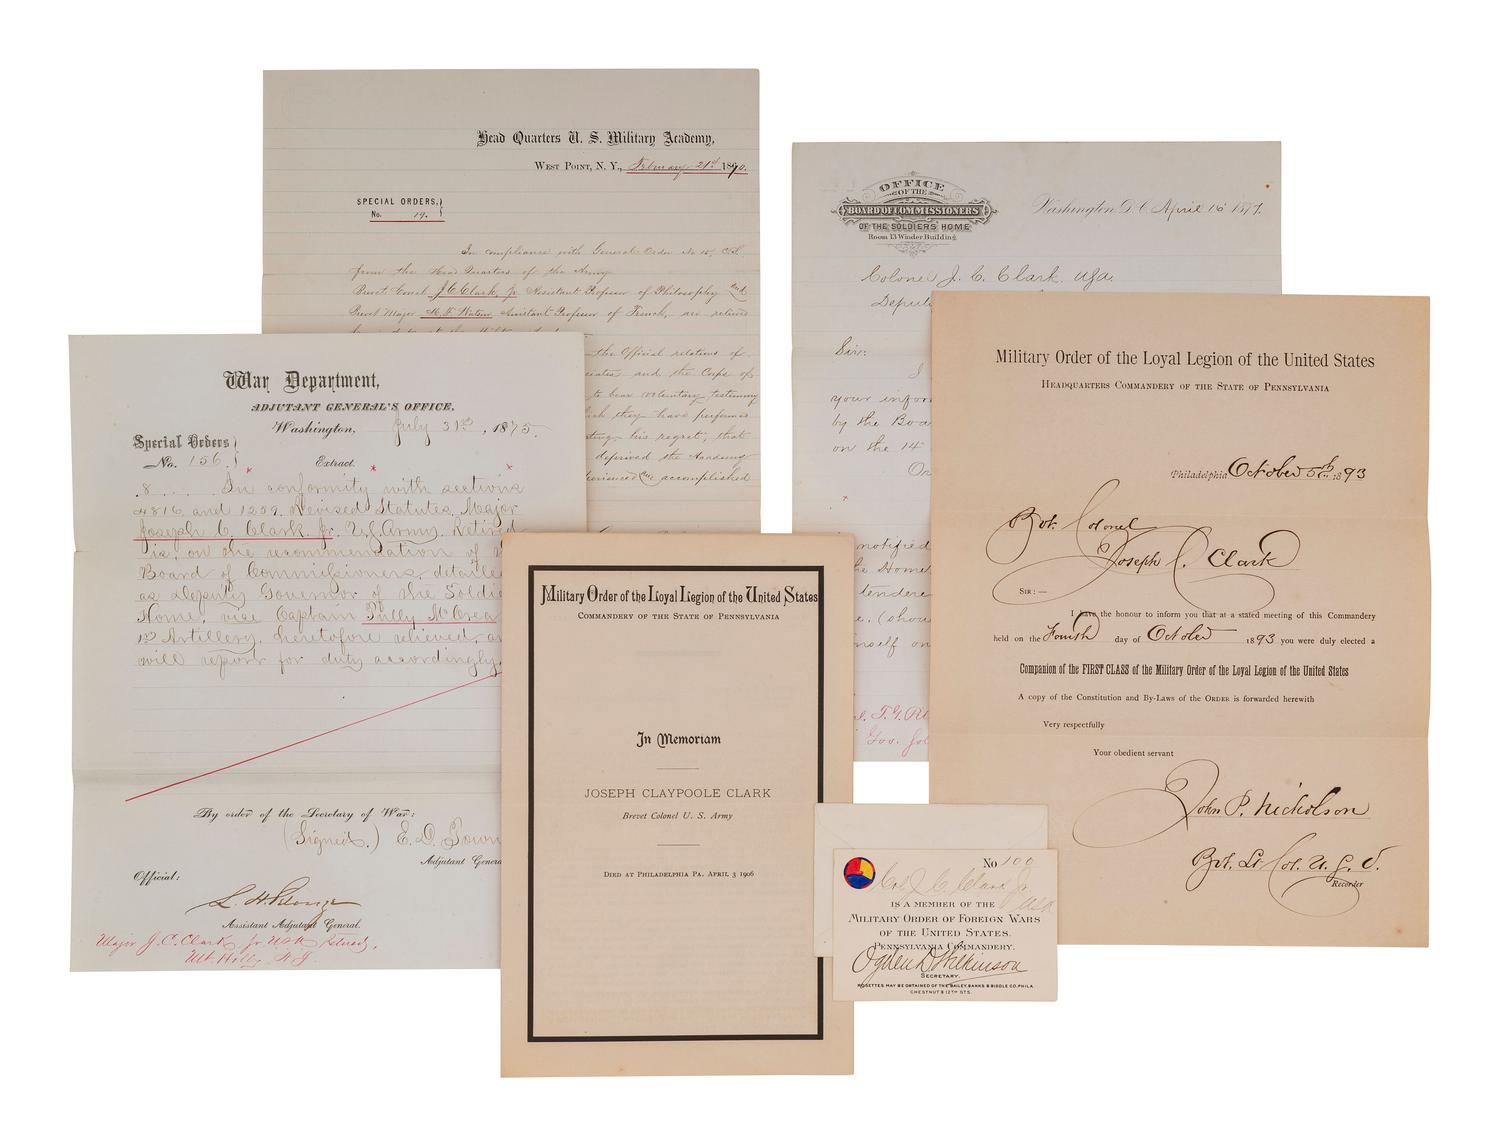 Head Quarters U. S. Military Academy,
West Point, N. Y., February 21st 1890.
SPECIAL ORDERS,
No. 19.
In compliance with General Order No 15,
from the Head Quarters of the Army
Brevet J. C. Clark, Jr. Assistant Professor of Philosophy and
Brevet Major Assistant Professor of French, are relieved
the Official relations of
and the Corps of
to bear voluntary testimony
they have performed
his regret, that
deprived the Academy
accomplished
OFFICE
OF THE
BOARD OF COMMISSIONERS
OF THE SOLDIERS HOME
Room 13 Winder Building
Washington D. C. April 16 1877.
Colonel J. C. Clark. USA.
Sir:
I
your
by the
on the 14
notified
the Home
tendere
War Department,
ADJUTANT GENERAL'S OFFICE,
Washington, July 31st, 1875.
Special Orders
No. 156.
Extract.
8 . . . In conformity with sections
4816 and 1259, Revised Statutes, Major
Joseph C. Clark, Jr. U.S. Army, Retired
is, on the recommendation of
Board of Commissioners, detailed
as Deputy Governor of the
Home, vice Captain Tully McCrea
1st Artillery, heretofore relieved, an
will report for duty accordingly.
By order of the Secretary of War:
(Signed.) E. D. Town
Adjutant Genera
Official:
Assistant Adjutant General.
Major J. C. Clark, Jr. USA Retired,
Mt. Holly. N. J.
Military Order of the Loyal Legion of the United States
Commandery of the State of Pennsylvania
In Memoriam
JOSEPH CLAYPOOLE CLARK
Brevet Colonel U. S. Army
Died at Philadelphia Pa. April 3 1906
Military Order of the Loyal Legion of the United States
Headquarters Commandery of the State of Pennsylvania
Philadelphia October 5th 1893
Bvt. Colonel
Joseph C. Clark
Sir:—
I have the honour to inform you that at a stated meeting of this Commandery
held on the Fourth day of October 1893 you were duly elected a
Companion of the FIRST CLASS of the Military Order of the Loyal Legion of the United States
A copy of the Constitution and By-Laws of the Order is forwarded herewith
Very respectfully
Your obedient servant
John P. Nicholson
Bvt. Lt. Col. U. S. V.
Recorder
No 100
Col J C Clark Jr.
USA
IS A MEMBER OF THE
Military Order of Foreign Wars
OF THE UNITED STATES.
Pennsylvania Commandery.
Ogden D. Wilkinson
SECRETARY.
ROSETTES MAY BE OBTAINED OF THE BAILEY, BANKS & BIDDLE CO. PHILA.
CHESTNUT & 12TH STS.